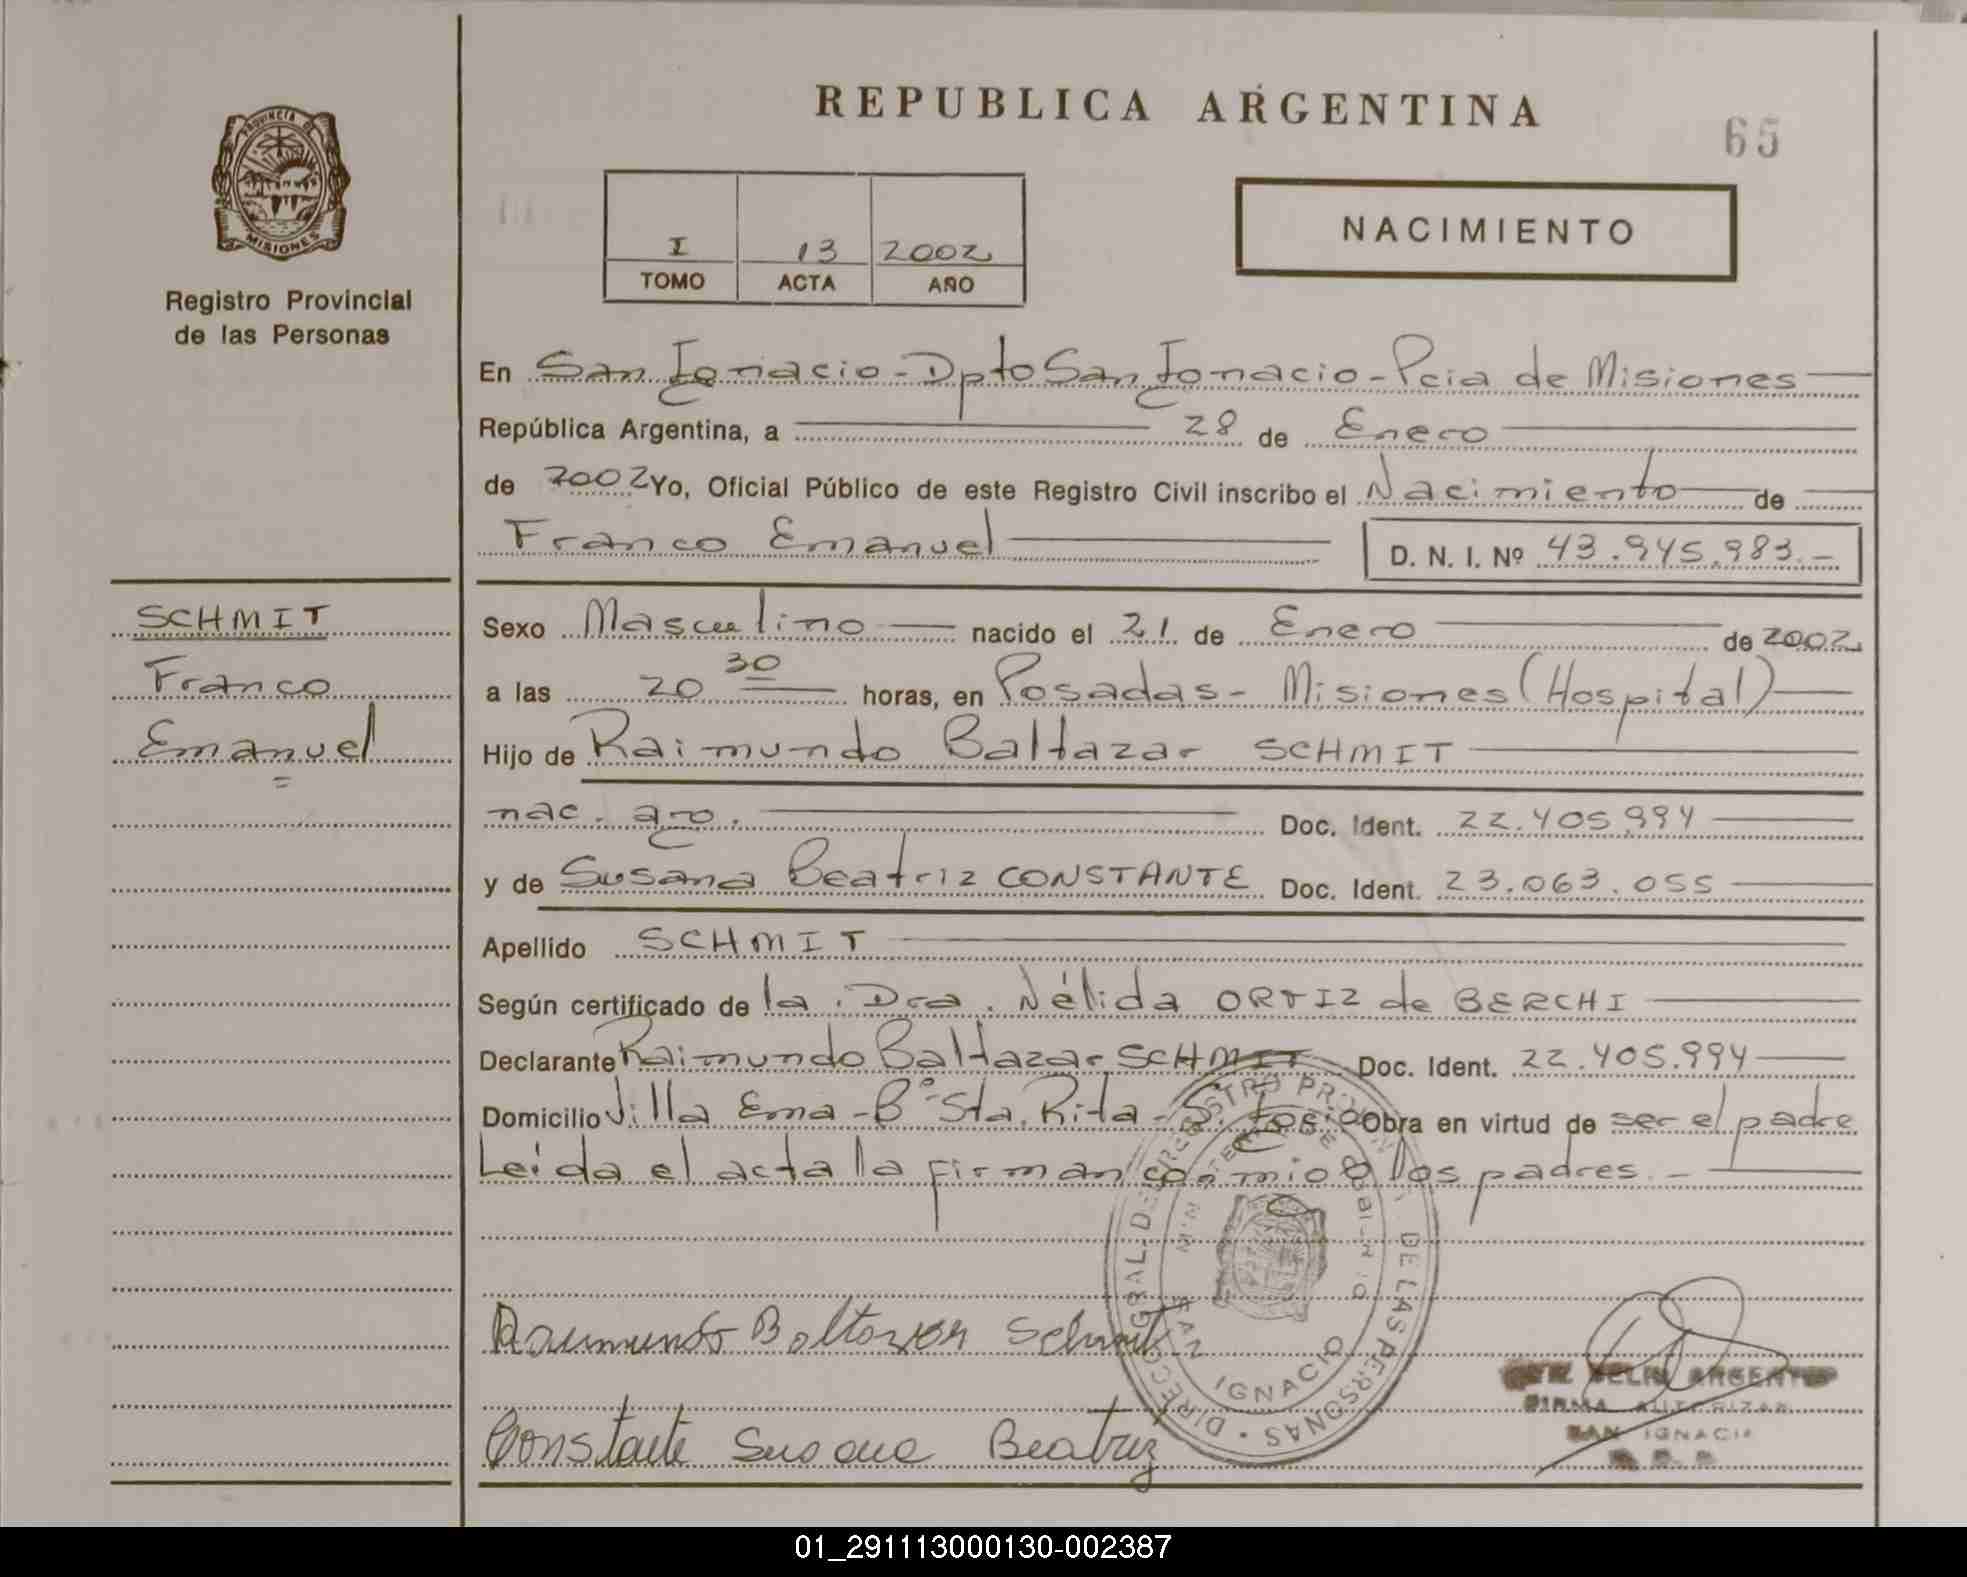 REPUBLICA ARGENTINA
65
PROVINCIA DE
MISIONES
Registro Provincial
de las Personas
I 13 2002
TOMO ACTA AÑO
NACIMIENTO
En San Ignacio - Dpto San Ignacio - Pcia de Misiones
República Argentina, a 28 de Enero
de 2002 Yo, Oficial Público de este Registro Civil inscribo el Nacimiento de
Franco Emanuel D. N. I. Nº 43.945.983.-
SCHMIT
Franco
Emanuel
Sexo Masculino nacido el 21 de Enero de 2002
a las 20 30 horas, en Posadas - Misiones (Hospital)
Hijo de Raimundo Baltazar SCHMIT
nac. arg. Doc. Ident. 22.405.994
y de Susana Beatriz CONSTANTE Doc. Ident. 23.063.055
Apellido SCHMIT
Según certificado de la Dra. Nélida ORTIZ de BERCHI
Declarante Raimundo Baltazar SCHMIT Doc. Ident. 22.405.994
Domicilio Villa Ema - Bº Sta. Rita - S. Igcio Obra en virtud de ser el padre
Leída el acta la firman conmigo los padres.-
Raimundo Baltazar Schmit
Constante Susana Beatriz
DIRECC. GRAL. DE REGISTRO PROVINCIAL DE LAS PERSONAS
SAN IGNACIO
ARGENTINO
SAN IGNACIO
01_291113000130-002387